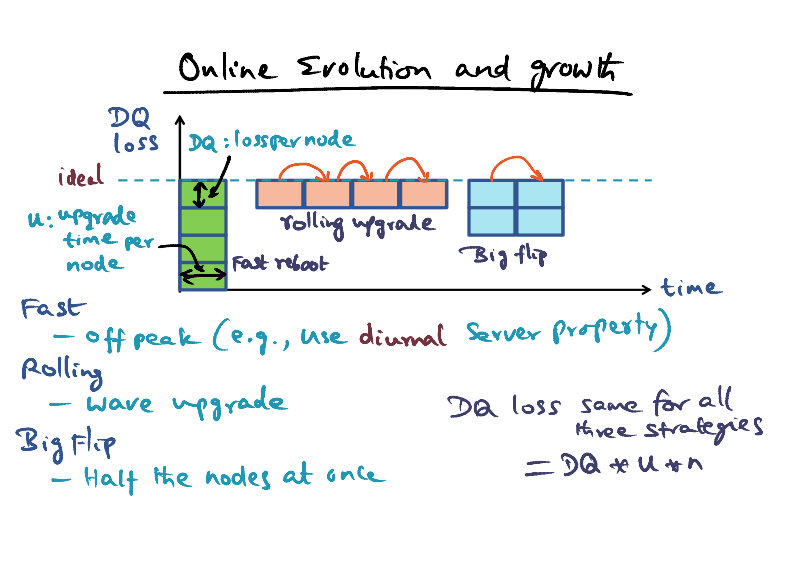 Online Evolution and growth
DQ
loss
DQ : loss per node
ideal
u: upgrade
time per
node
rolling upgrade
Big flip
Fast reboot
time
Fast
– off peak (e.g., use diurnal server property)
Rolling
– wave upgrade
Big Flip
– Half the nodes at once
DQ loss same for all
three strategies
= DQ * u * n